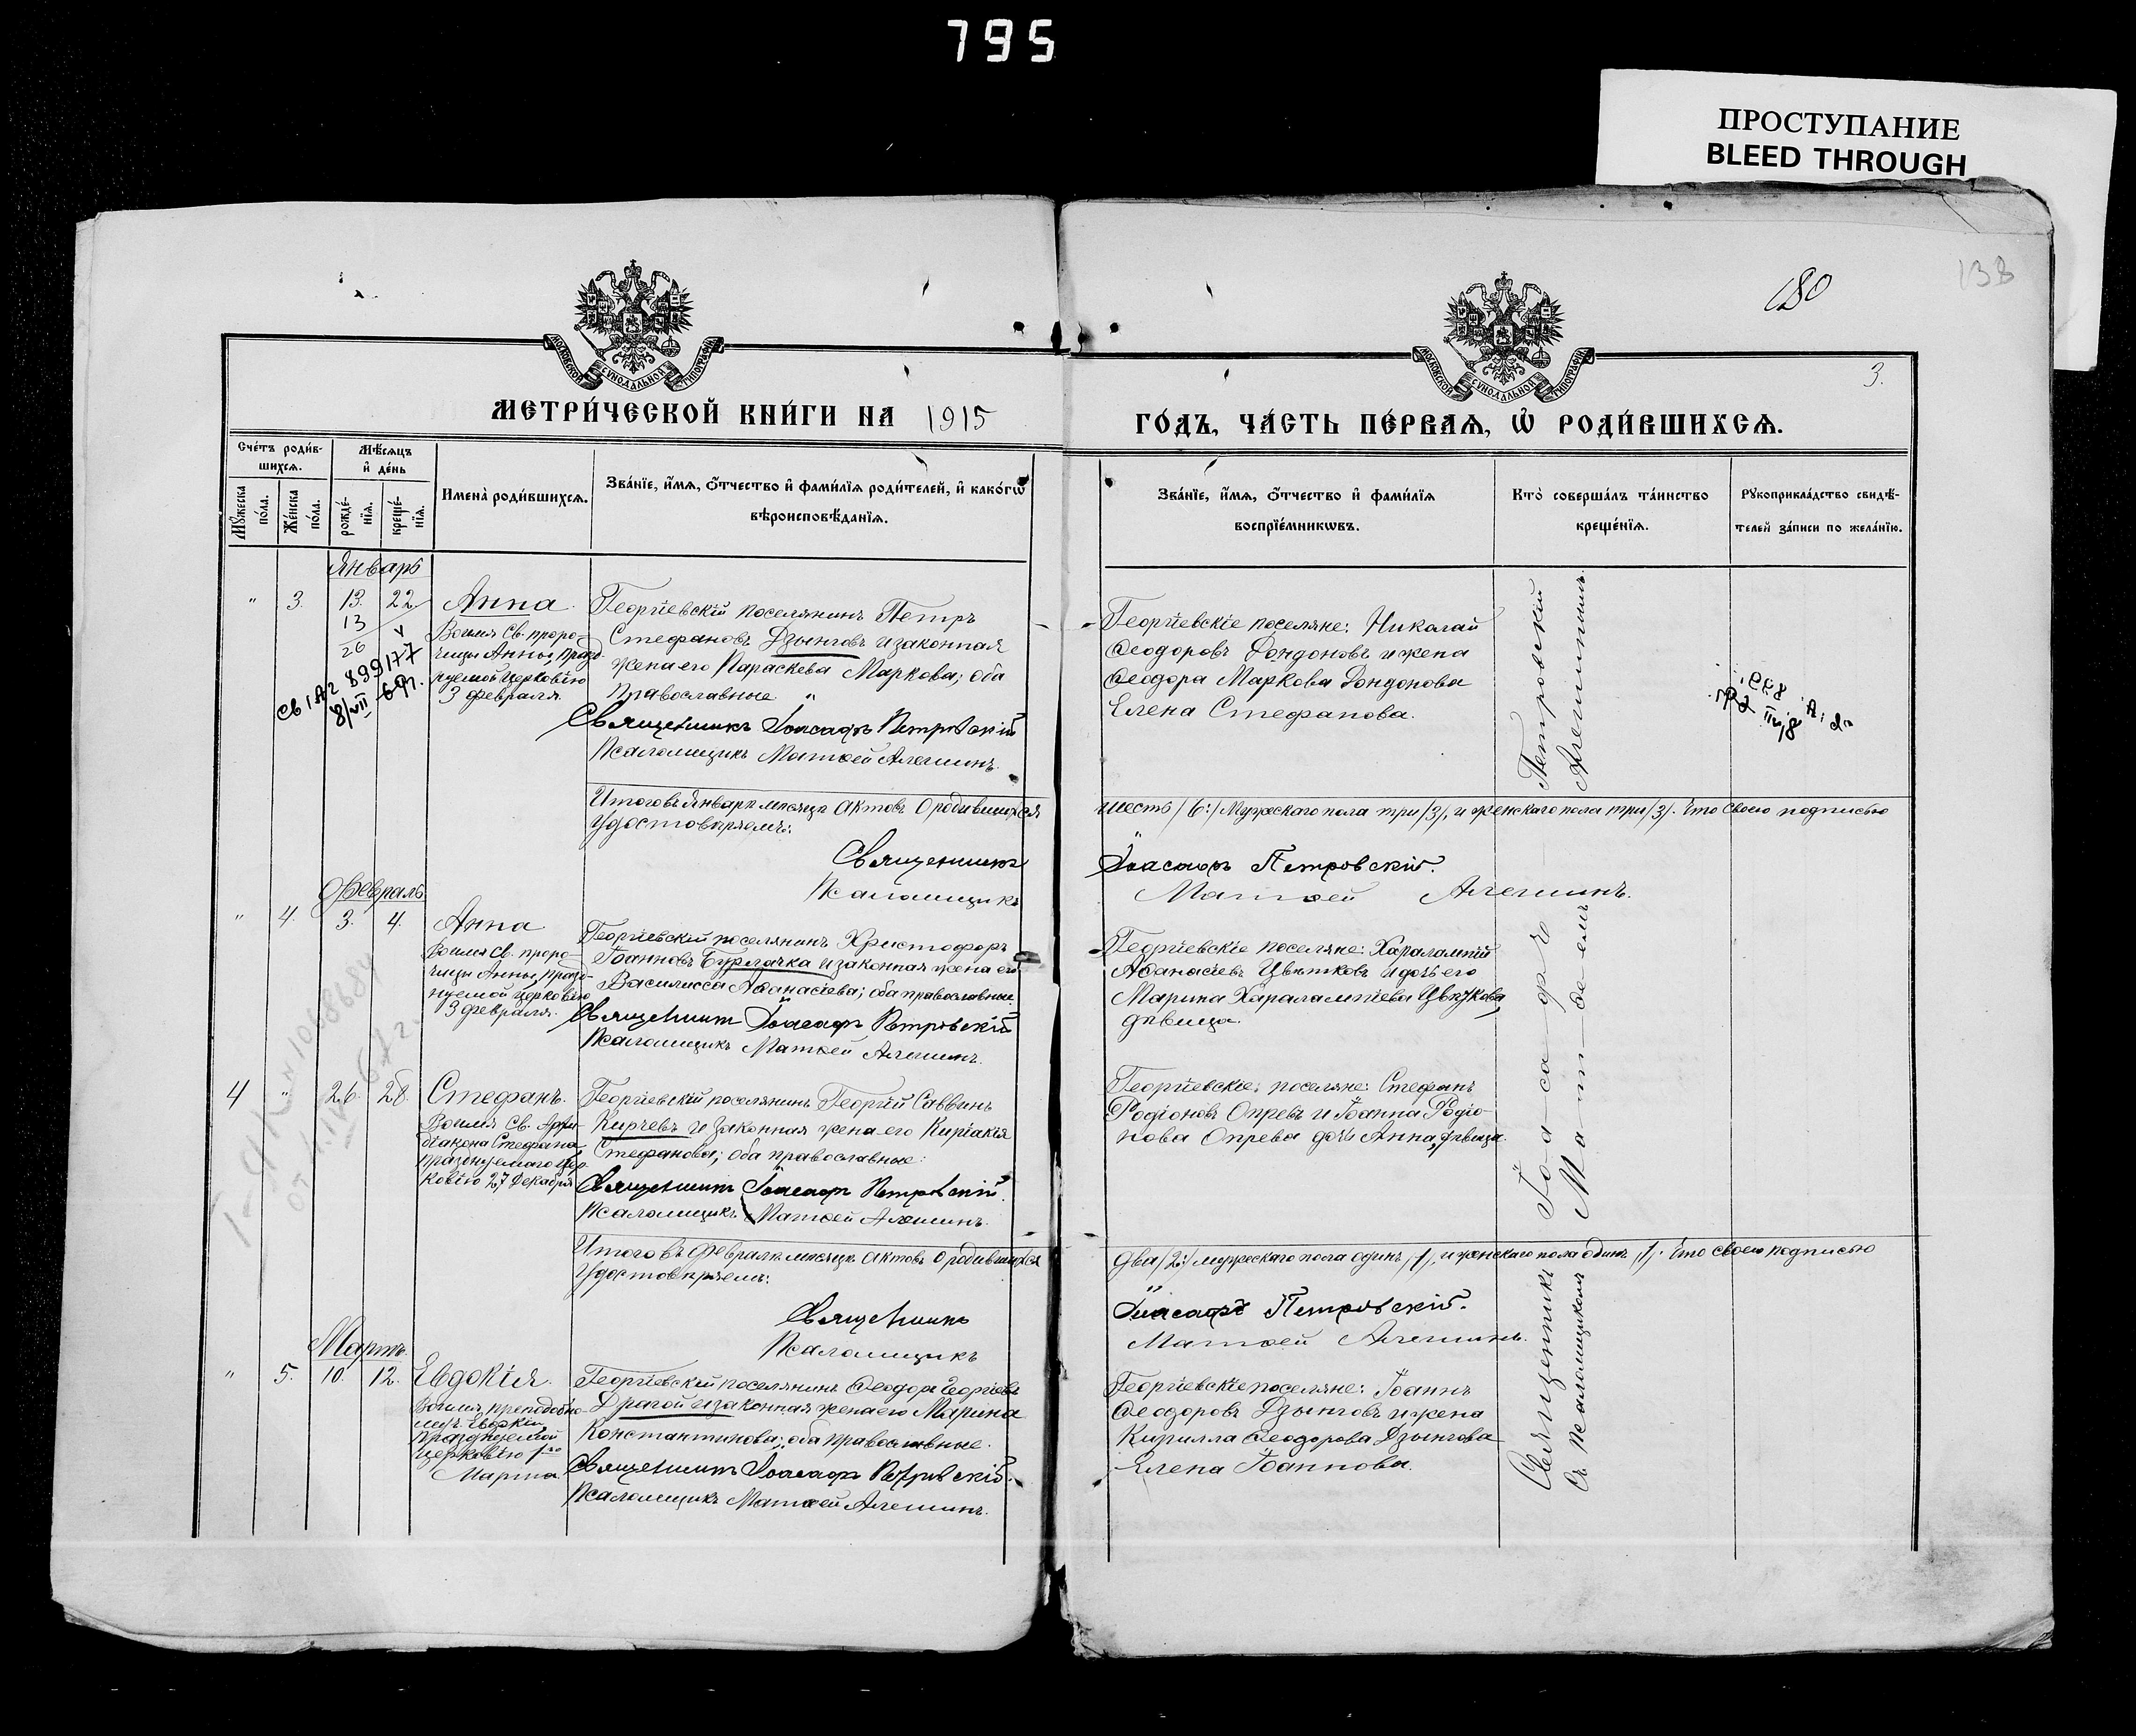 795
ПРОСТУПАНИЕ
BLEED THROUGH
138
180
3.
МОСКОВСКОЙ СѴНОДАЛЬНОЙ ТИПОГРАФІИ
МОСКОВСКОЙ СѴНОДАЛЬНОЙ ТИПОГРАФІИ
МЕТРИ́ЧЕСКОЙ КНИ́ГИ НА 1915
ГО́ДЪ, ЧА́СТЬ ПЕ́РВАѦ, Ѽ РОДИ́ВШИХСѦ.
Сче́тъ роди́в-
шихсѧ.
Мѣ́сѧцъ
и҆ де́нь
Мꙋ́жеска
по́ла.
Же́нска
по́ла.
рожде́-
нїѧ.
креще́-
нїѧ.
Имена̀ роди́вшихсѧ.
Зва́нїе, и҆́мѧ, ѻ҆́тчество и҆ фами́лїѧ роди́телей, и҆ како́гѡ
вѣроисповѣ́данїѧ.
Зва́нїе, и҆́мѧ, ѻ҆́тчество и҆ фами́лїѧ
воспрїе́мникѡвъ.
Кто̀ соверша́лъ та́инство
креще́нїѧ.
Рꙋкоприкла́дство свидѣ́-
телей за́писи по жела́нїю.
Январь
" 3. 13. 22 Анна.
13
26
Во имя Св. проро-
чицы Анны, празд-
нуемой Церковію
3 февраля.
Св IАг 899177
8/VII-69г.
Георгіевскій поселянинъ Петръ
Стефановъ Дзынговъ и законная
жена его Параскева Маркова; оба
православные.
Священникъ Іоасафъ Петровскій
Псаломщикъ Матѳей Алешинъ.
Георгіевскіе поселяне: Николай
Ѳеодоровъ Дондоновъ и жена
Ѳеодора Маркова Дондонова
Елена Стефанова.
Итого въ Январѣ мѣсяцѣ актовъ о родившихся
шесть /6:/ Мужескаго пола три /3/, и женскаго пола три /3/. Что своею подписью
удостовѣряемъ:
Священникъ
Іоасафъ Петровскій.
Псаломщикъ
Матѳей Алешинъ.
Февраль
" 4. 3. 4. Анна
Во имя Св. проро-
чицы Анны, празд-
нуемой церковію
3 февраля.
Георгіевскій поселянинъ Христофоръ
Іоанновъ Бурлачка и законная жена его
Василисса Аѳанасіева; оба православные.
Священникъ Іоасафъ Петровскій
Псаломщикъ Матѳей Алешинъ.
Георгіевскіе поселяне: Харалампій
Аѳанасіевъ Цвѣтковъ и дочь его
Марина Харалампіева Цвѣткова,
дѣвица.
4 " 26. 28. Стефанъ.
Во имя Св. Архи-
діакона Стефана,
празднуемаго Цер-
ковію 27 Декабря
Георгіевскій поселянинъ Георгій Саввинъ
Кирчевъ и законная жена его Киріакія
Стефанова; оба православные:
Священникъ Іоасафъ Петровскій.
Псаломщикъ Матѳей Алешинъ.
Георгіевскіе: поселяне: Стефанъ
Родіоновъ Опревъ и Іоанна Родіо-
нова Опрева дочь Анна, дѣвица.
Итого въ Февралѣ мѣсяцѣ актовъ о родившихся
два /2:/ мужескаго пола одинъ /1/, и женскаго пола одинъ /1/. Что своею подписью
удостовѣряемъ:
Священникъ
Іоасафъ Петровскій.
Псаломщикъ
Матѳей Алешинъ.
Мартъ.
" 5. 10. 12. Евдокія.
Во имя преподобно-
муч. Евдокіи,
празднуемой
церковію 1-го
Марта.
Георгіевскій поселянинъ Ѳеодоръ Георгіевъ
Драгой и законная жена его Марина
Константинова; оба православные.
Священникъ Іоасафъ Петровскій.
Псаломщикъ Матѳей Алешинъ.
Георгіевскіе поселяне: Іоаннъ
Ѳеодоровъ Дзынговъ и жена
Кирилла Ѳеодорова Дзынгова
Елена Іоаннова.
Священникъ Іоасафъ Петровскій
съ псаломщикомъ Матѳеемъ Алешинымъ.